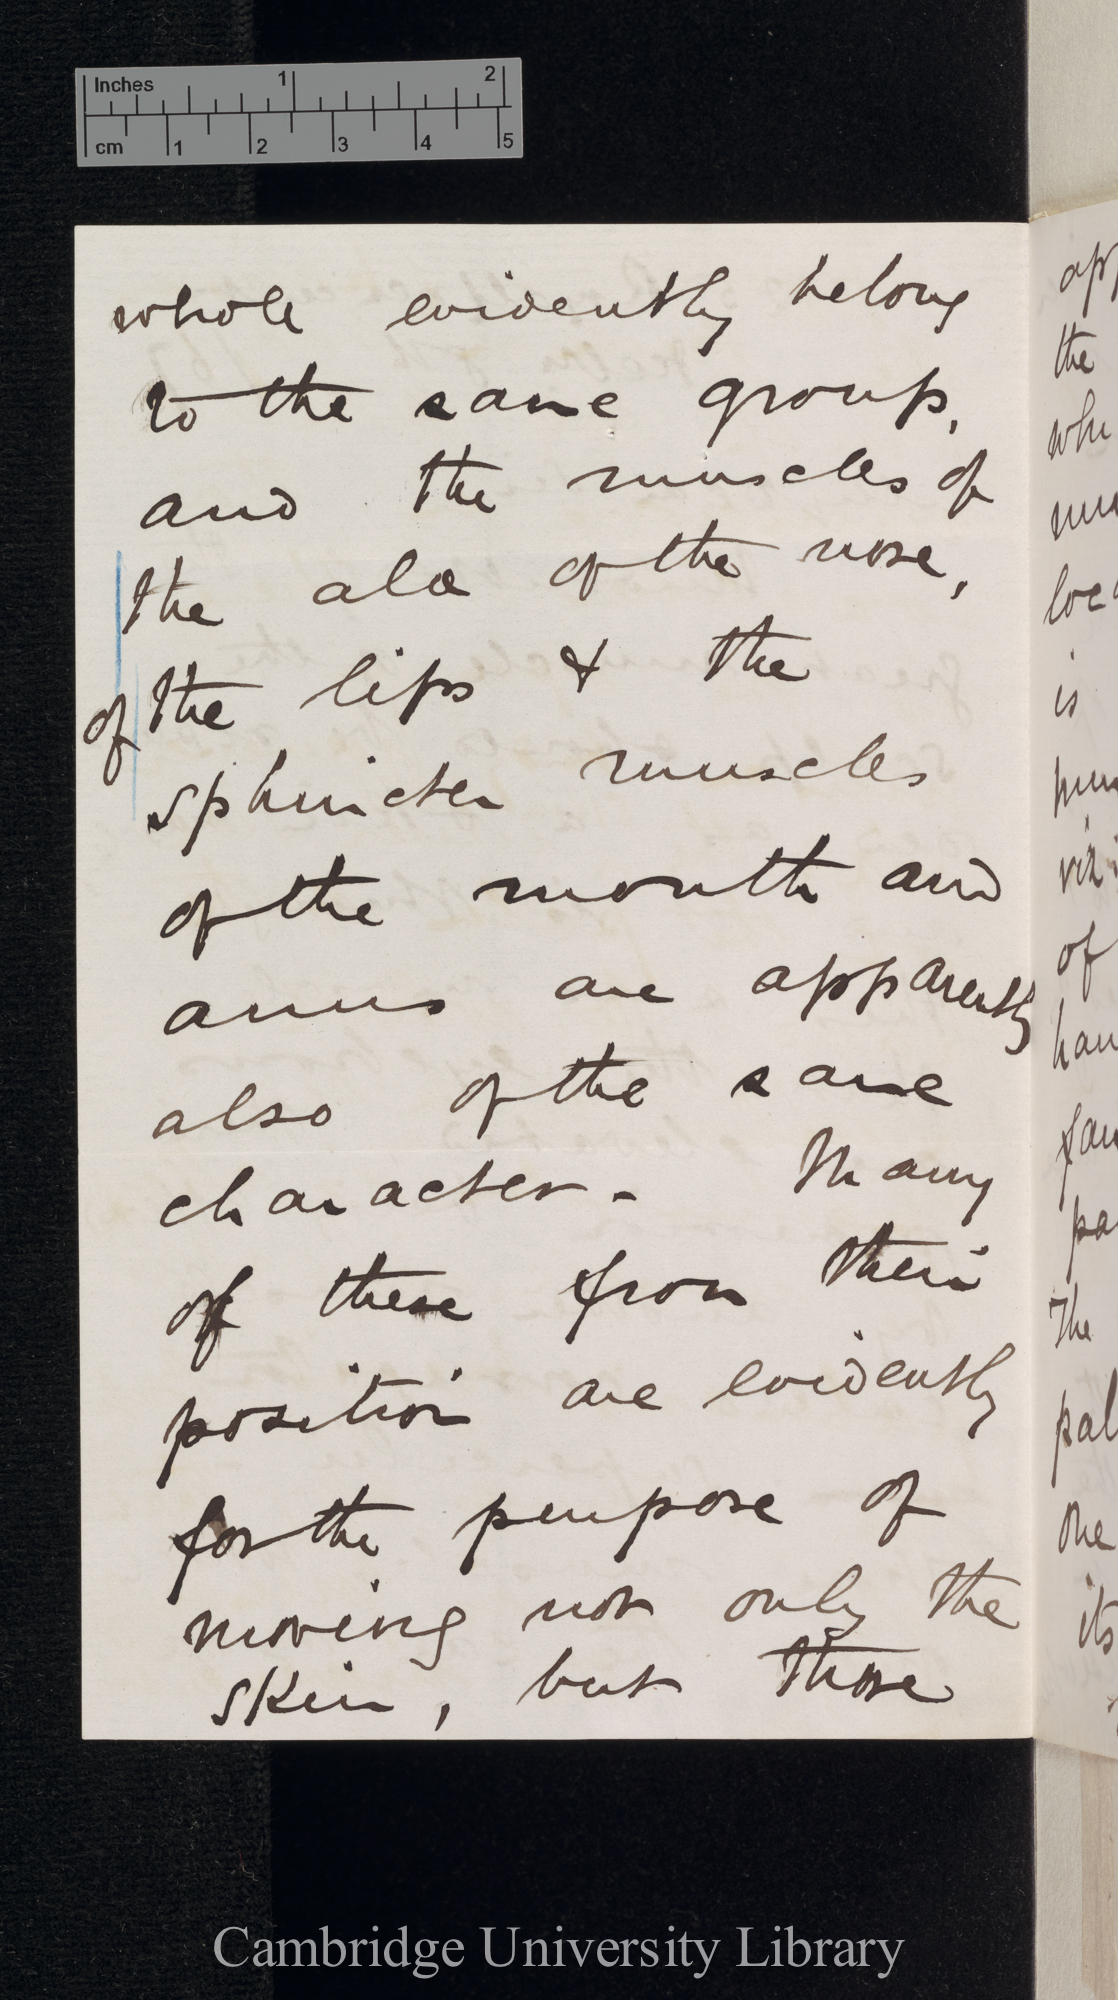 Inches 1 2
cm 1 2 3 4 5
whole evidently belong
to the same group,
and the muscles of
the alæ of the nose,
of the lips & the
sphincter muscles
of the mouth and
anus are apparently
also of the same
character. Many
of these from their
position are evidently
for the purpose of
moving not only the
skin, but those
the
is
of
The
one
its
Cambridge University Library